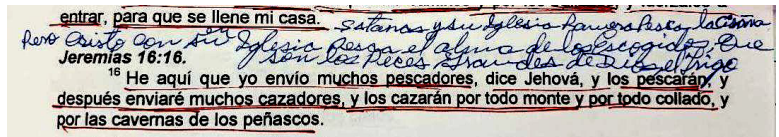 entrar, para que se llene mi casa. Satanas y su Iglesia Ramera Pesca la Cizaña
Pero Cristo con su Iglesia Pesca el alma de los Escogidos, Que
Jeremías 16:16. son los Peces Grandes de Dios el trigo
16 He aquí que yo envío muchos pescadores, dice Jehová, y los pescarán, y
después enviaré muchos cazadores, y los cazarán por todo monte y por todo collado, y
por las cavernas de los peñascos.